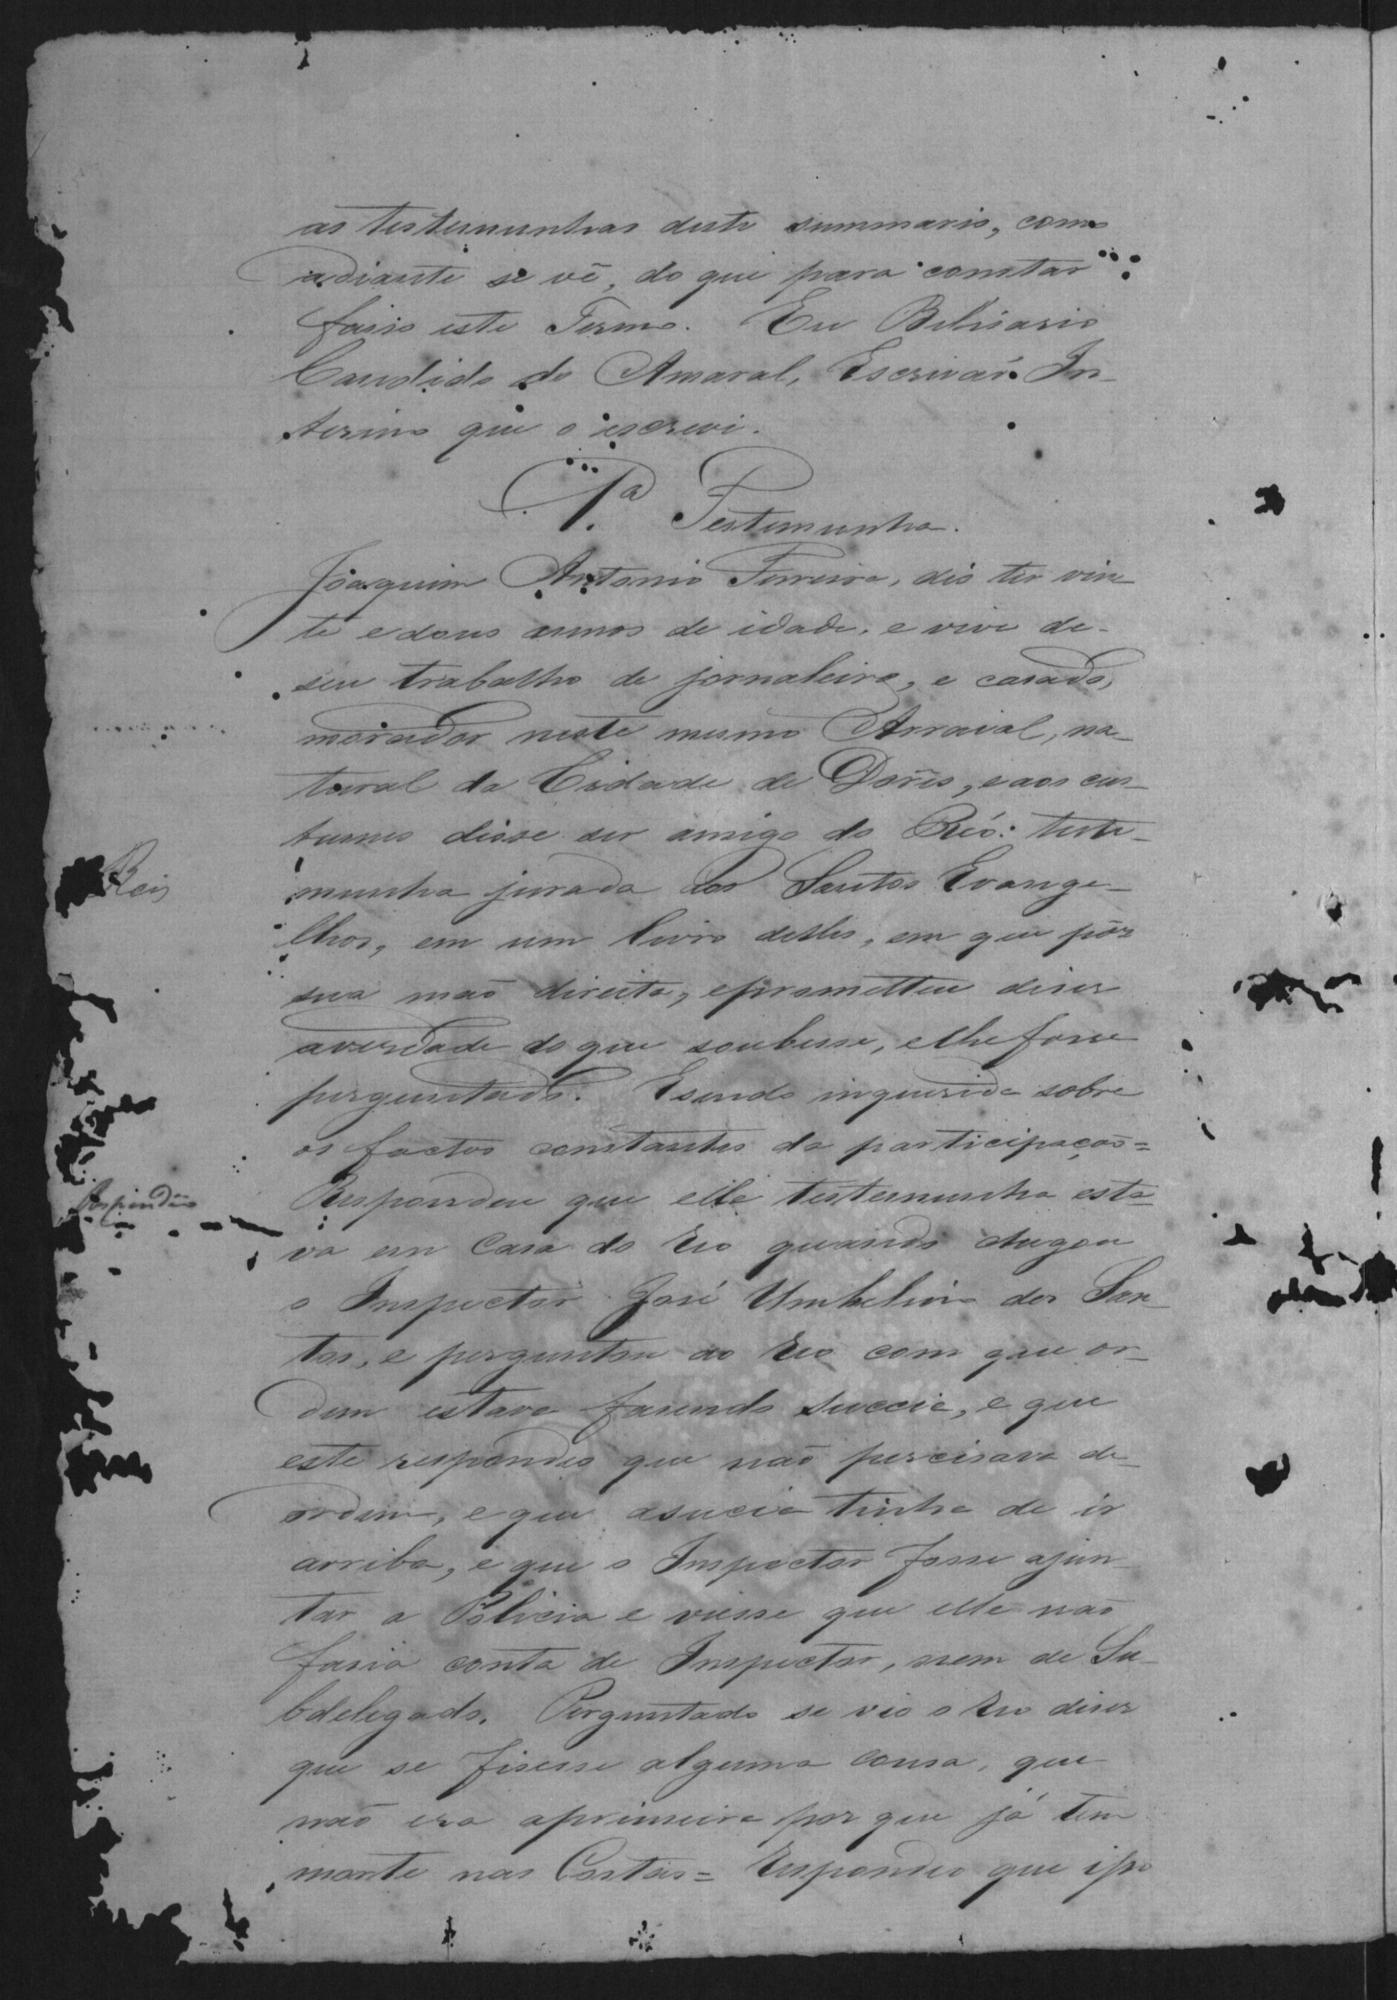 as testemunhas deste summario, como
adiante se vê, do que para constar
faiso este Termo. Eu Belisario
Candido do Amaral, Escrivão In-
terino que o escrevi.
1ª Testemunha.
Joaquim Antonio Ferreira, dis ter vin
te e dous annos de idade, e vive de-
seu trabalho de jornaleiro, e casado,
morador neste mesmo Arraial, na-
tural da Cidade de Dores, e aos cus-
tumes disse ser amigo do Reó: teste-
munha jurada dos Santos Evange-
lhos, em um livro delles, em que pôs
sua mão direita, eprometteu diser
averdade do que soubesse, elhe fosse
perguntado. Esendo inquerida sobre
os factos constantes da participação=
Respondeu que elle testemunha esta-
va em Casa do Reo quando chegou
o Inspector José Umbelino dos San-
tos, e perguntou ao Reo com que or-
dem estava fasendo succia, e que
este respondeo que não percisava de-
ordem, e que asucia tinha de ir
arriba, e que o Inspector fosse ajun-
tar a Policia e viesse que elle não
fasia conta de Inspector, nem de Su-
bdelegado. Perguntado se vio o Reo diser
que se fisesse alguma cousa, que
não era aprimeira por que já tem
morte nas Costas= Respondeo que isso
Reis
Respondeo